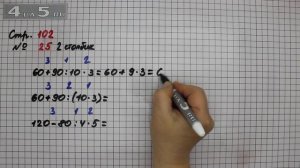 4LA5.RU
Стр. 102
№ 25 2 столбик
3 1 2
60+90:10·3=60+9·3=6
3 2 1
60+90:(10·3)=
3 1 2
120-80:4·5=